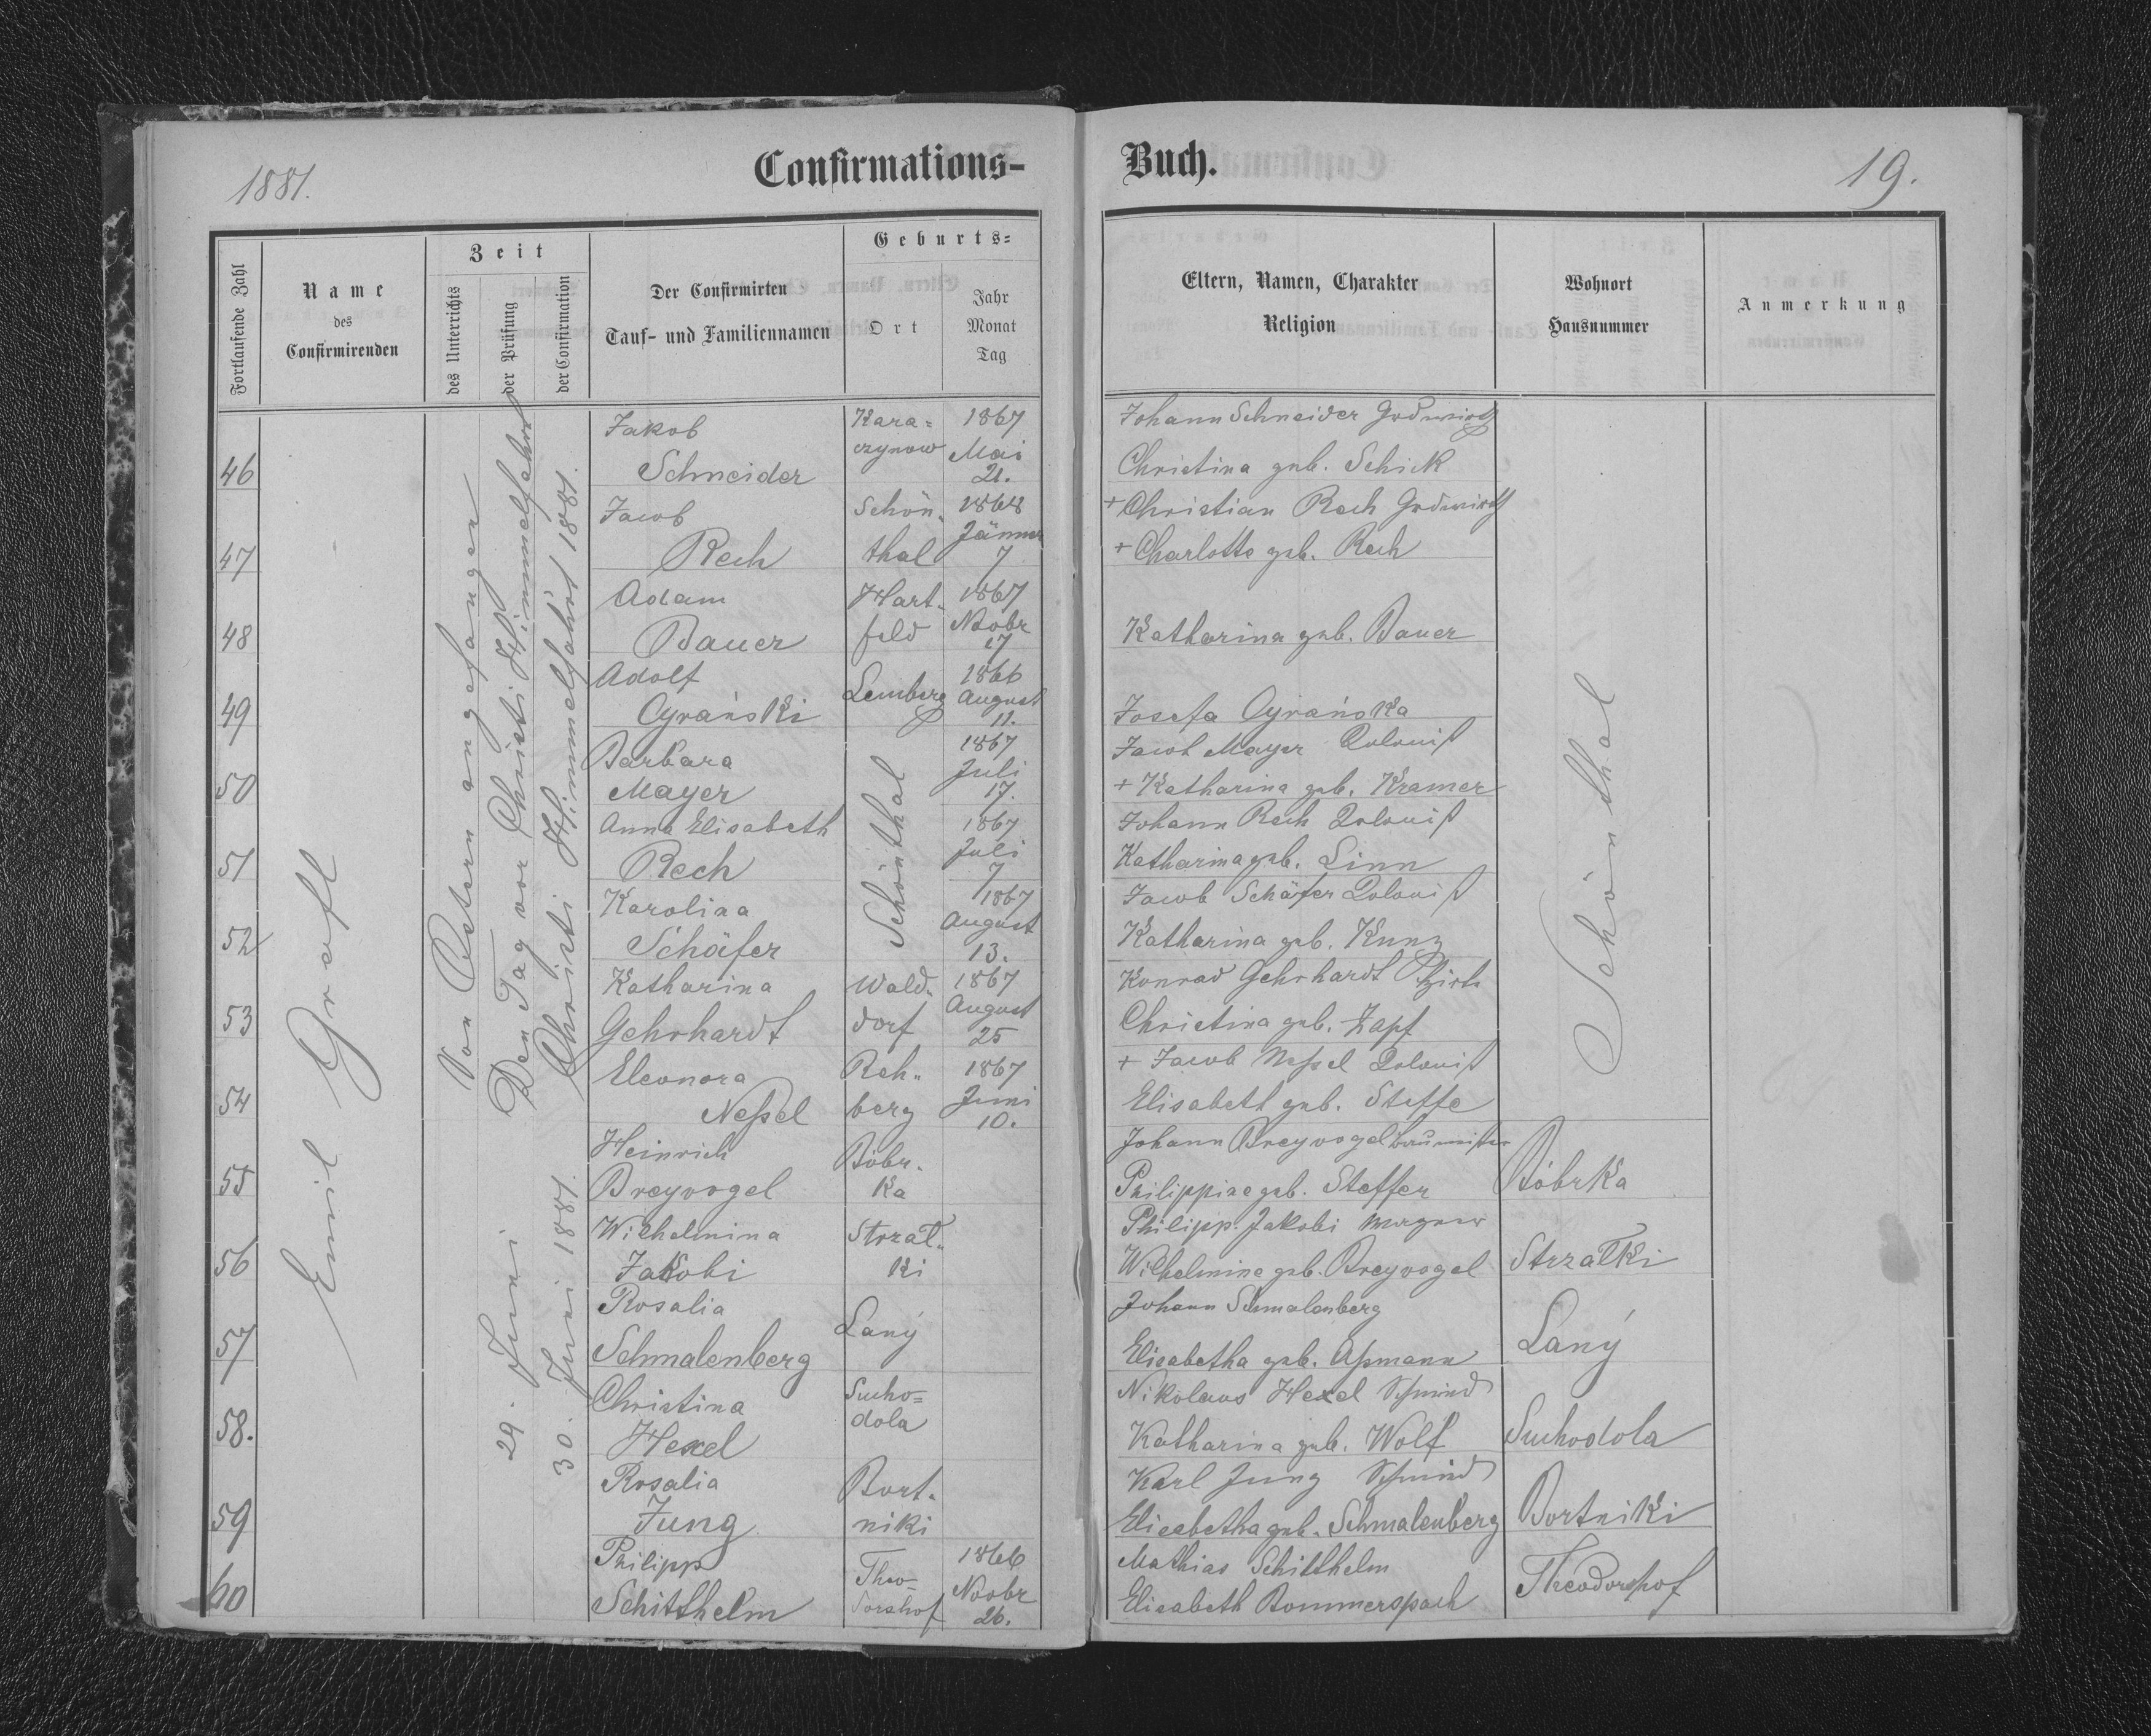 1881.
Confirmations-
Buch.
19.
Fortlaufende Zahl
Name
des
Confirmirenden
Zeit
des Unterrichts
der Prüfung
der Confirmation
Der Confirmirten
Tauf- und Familiennamen
Geburts-
Ort
Jahr
Monat
Tag
Eltern, Namen, Charakter
Religion
Wohnort
Hausnummer
Anmerkung
Emil Grafl
Von Ostern angefangen
Den Tag vor Christi Himmelfahrt
Christi Himmelfahrt 1881.
29. Juni
30. Juni 1881.
46
Jakob
Schneider
Kara=
czynow
1867
Mai
21.
Johann Schneider
Christina geb. Schick
47
Jacob
Rech
Schön-
thal
1868
Jänner
7
+ Christian Rech
+ Charlotte geb. Rech
48
Adam
Bauer
Hart-
feld
1867
Novbr
17
Katharina geb. Bauer
49
Adolf
Cyrański
Lemberg
1866
August
11.
Josefa Cyrańska
50
Barbara
Mayer
Schönthal
1867
Juli
17.
Jacob Mayer Kolonist
+ Katharina geb. Kramer
51
Anna Elisabeth
Rech
1867
Juli
7
Johann Rech Kolonist
Katharina geb. Linn
52
Karolina
Schäfer
1867
August
13.
Jacob Schäfer Kolonist
Katharina geb. Kunz
53
Katharina
Gehrhardt
Wald-
dorf
1867
August
25
Konrad Gehrhardt
Christina geb. Zapf
54
Eleonora
Neßel
Reh-
berg
1867
Juni
10.
+ Jacob Neßel Kolonist
Elisabeth geb. Steffe
Schönthal
55
Heinrich
Breyvogel
Bóbr-
ka
Johann Breyvogel
Philippine geb. Steffer
Bóbrka
56
Wilhelmina
Jakobi
Strzał-
ki
Philipp Jakobi Wagner
Wilhelmine geb. Breyvogel
Strzałki
57
Rosalia
Schmalenberg
Laný
Johann Schmalenberg
Elisabetha geb. Aßmann
Laný
58.
Christina
Hexel
Sucho=
dola
Nikolaus Hexel Schmied
Katharina geb. Wolf
Suchodola
59
Rosalia
Jung
Bort-
niki
Karl Jung Schmied
Elisabetha geb. Schmalenberg
Bortniki
60
Philipp
Schitthelm
Theo=
dorshof
1866
Novbr
26.
Mathias Schitthelm
Elisabeth Bommerspach
Theodorshof